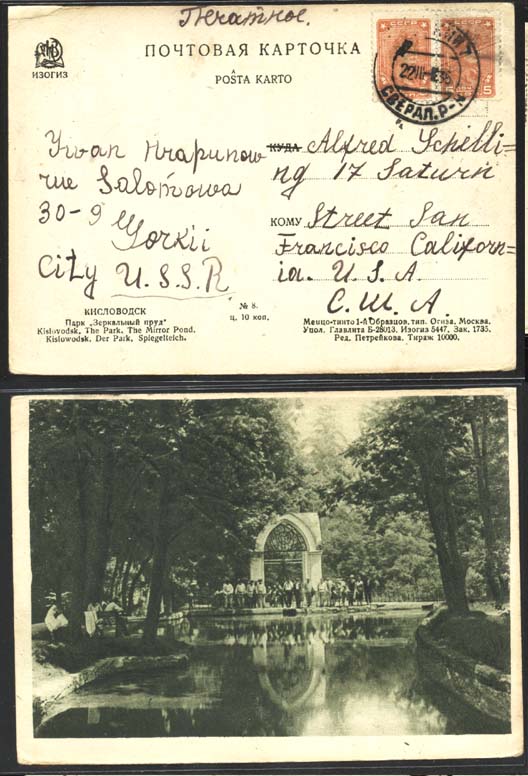 Печатное.
ИЗОГИЗ
ПОЧТОВАЯ КАРТОЧКА
POŜTA KARTO
СССР
5
22 III
СВЕРДЛ. Р-Н
Ywan Hrapunow
rue Salomowa
30-9
Gorkii
City U.S.S.R
КУДА Alfred Schelli=
ng 17 Saturn
КОМУ Street San
Francisco Californ=
ia. U.S.A.
С.Ш.А.
КИСЛОВОДСК
Парк „Зеркальный пруд“
Kislovodsk, The Park, The Mirror Pond.
Kislowodsk, Der Park, Spiegelteich.
№ 8.
ц. 10 коп.
Меццо-тинто 1-й Образцов. тип. Огиза, Москва.
Упол. Главлита Б-28013. Изогиз 5447. Зак. 1735.
Ред. Петрейкова. Тираж 10000.